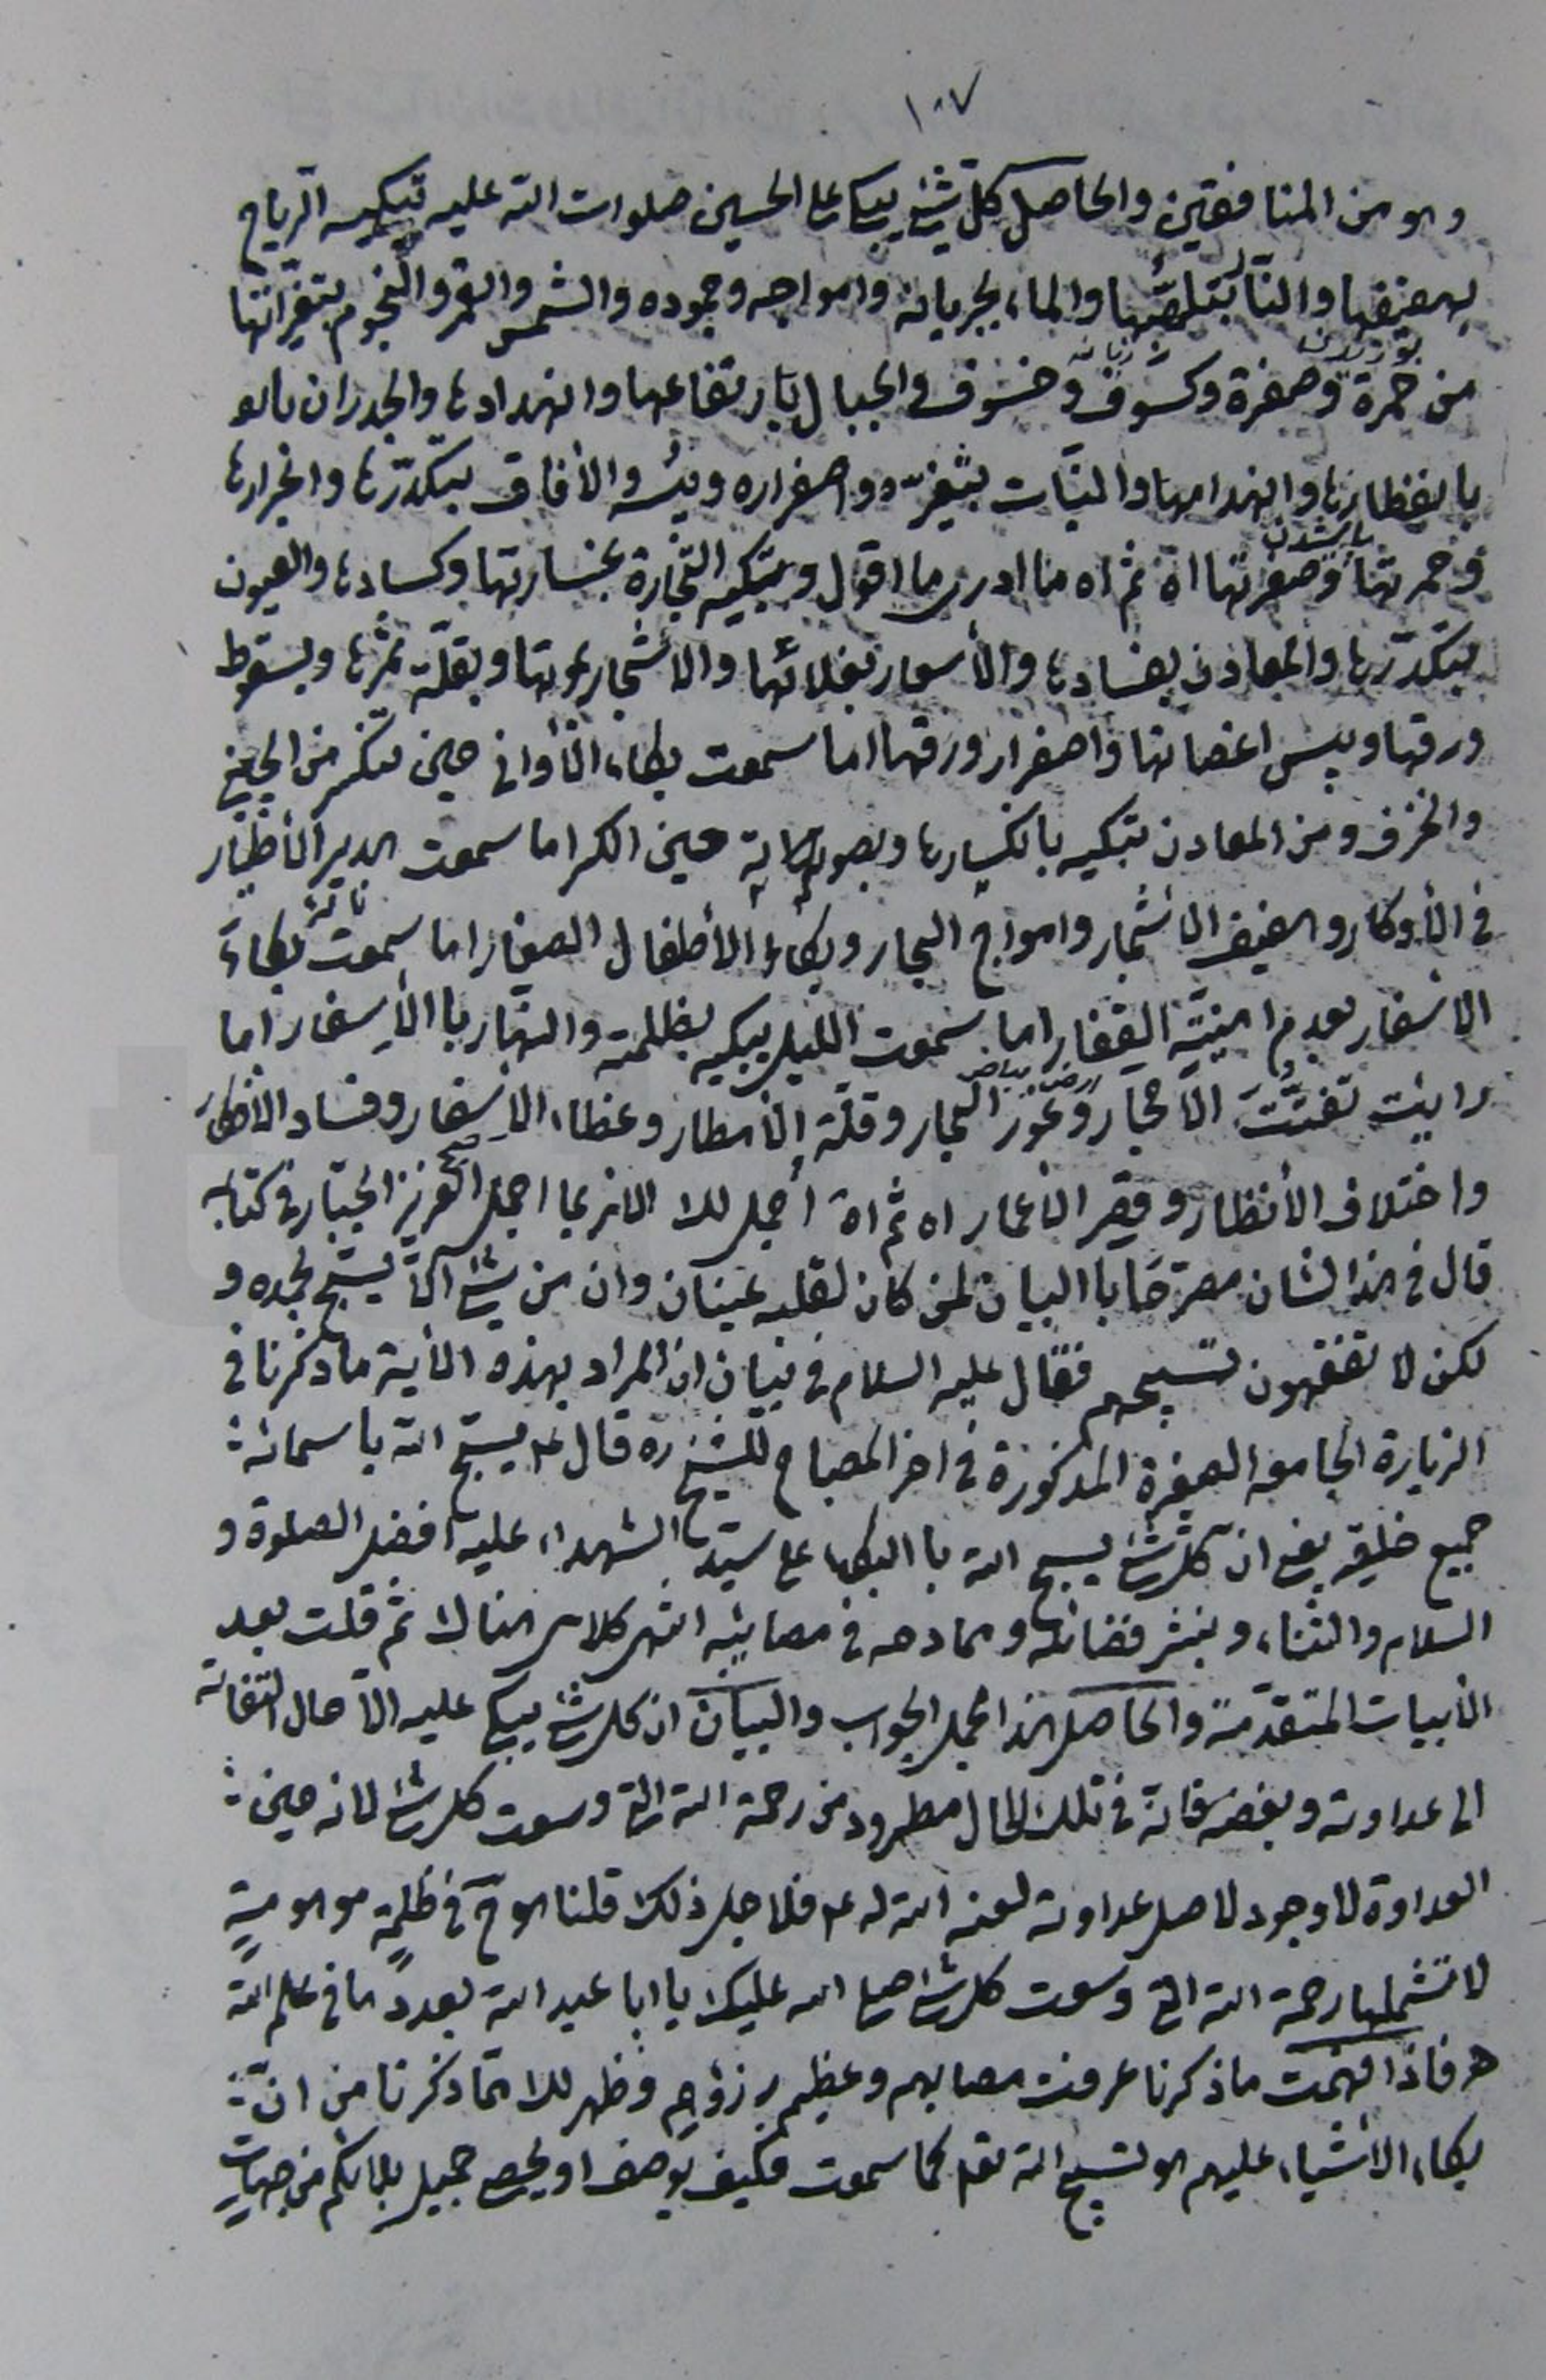 ١٠٧
وهو من المنافقين والحاصل كلّ شيء يبكي على الحسين صلوات الله عليه تبكيه الرياح
بهفيفها والنار بتلهّبها والماء بجريانه وامواجه وجموده والشمس والقمر والنجوم بتغيّراتها
من حمرة وصفرة وكسوف وخسوف والجبال بارتفاعها وانهدادها والجدران
بانفطارها وانهدامها والنبات بتغيّره واصفراره ويبسه والأفاق بتكدّرها واغبرارها
وحمرتها وصفرتها اه ثم اه ما ادري ما اقول وتبكيه التجارة بخسارتها وكسادها والعيون
بتكدّرها والمعادن بفسادها والأسعار بغلائها والأشجار بموتها وبقلّة ثمرها وبسقوط
ورقها ويبس اغصانها واصفرار ورقها اما سمعت بكاء الأواني حين تكسر من الصيني
والخزف ومن المعادن تبكيه بانكسارها وبصوتها حين الكسر اما سمعت هدير الأطيار
في الأوكار وهفيف الأشجار وامواج البحار وبكاء الأطفال الصغار اما سمعت بكاء
الأسفار بعدم امنيّة القفار اما سمعت الليل يبكيه بظلمته والنهار با الأسفار اما
رايت تفتّت الأحجار وغور البحار وقلّة الأمطار وغطاء الأسفار وفساد الأفكار
واختلاف الأنظار وقصر الأعمار اه ثم اه أجمل لك الامر بما اجمل العزيز الجبّار في كتابه
قال في هذا الشان مصرّحًا با البيان لمن كان لقلبه عينان وان من شيء الّا يسبّح بحمده و
لكن لا تفقهون تسبيحهم فقال عليه السلام في بيان ان المراد بهذه الأية ما ذكرنا في
الزيارة الجامعه الصغيرة المذكورة في اخر المصباح للشيخ ره قال ع يسبّح الله باسمائه
جميع خلقه يعني انّ كلّ شيء يسبح الله با البكاء على سيّد الشهداء عليه افضل الصلوة و
السلام والثناء وبنشر فضائله ومحامده في مصائبه انتهى كلامي هناك ثم قلت بعد
الأبيات المتقدّمة والحاصل هذا مجمل الجواب والبيان ان كل شيء يبكي عليه الّا حال التفاته
الى عداوته وبغضه فانه في تلك الحال مطرود من رحمة الله التي وسعت كل شيء لانه حين
العداوة لا وجود لاصل عداوته لعنه الله له ع فلاجل ذلك قلنا هو ح في ظلمة موهومية
لا تشملها رحمة الله التي وسعت كل شيء صلى الله عليك يا ابا عبد الله بعدد ما في علم الله
فاذا فهمت ما ذكرنا عرفت مصابهم وعظيم رزؤهم وظهر لك ممّا ذكرنا من انّ
بكاء الأشياء عليهم هو تسبيح الله تعه كما سمعت فكيف يوصف او يحصى جميل بلائكم من جهات